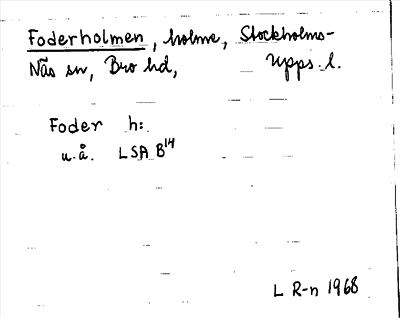 Foderholmen, holme, Stockholms-
Näs sn, Bro hd, Upps. l.
Foder h:
u.å. LSA B14
L R-n 1968